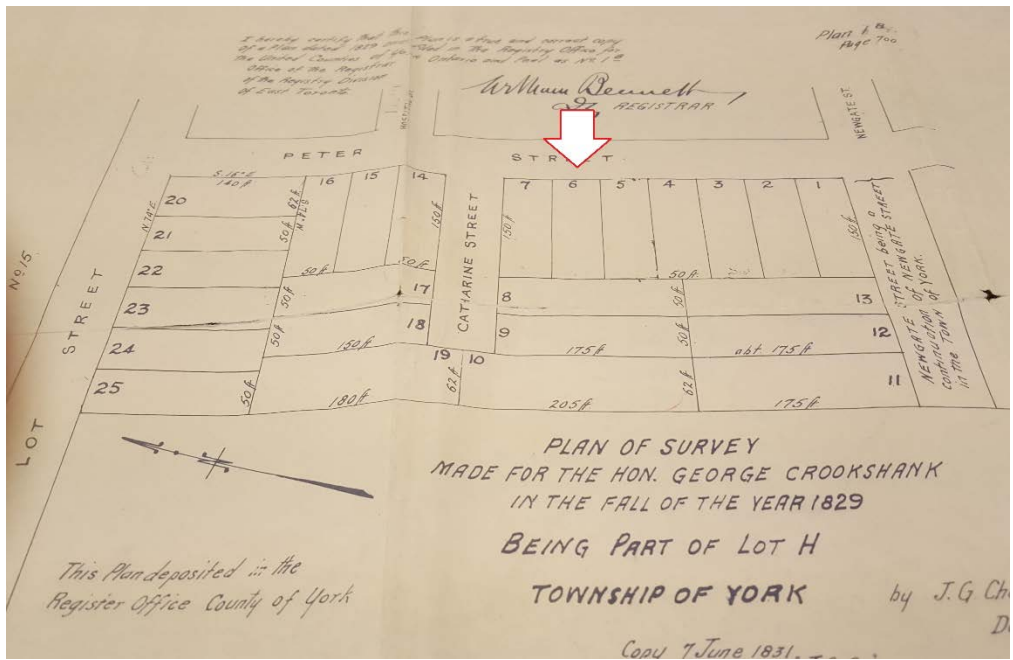 I hereby certify that this Plan is a true and correct copy
of a Plan dated 1829 and filed in the Registry Office for
the United Counties of York Ontario and filed as No 1
Office of the Registrar
of the Registry Division
of East Toronto
Plan 1 B
Page 700
William Bennett
REGISTRAR
NEWGATE ST.
PETER STREET
S. 16° E
140 ft
N. 74° E
20
21
22
23
24
25
16
15
14
62 ft
50 ft
50 ft
50 ft
150 ft
50 ft
50 ft
17
18
150 ft
50 ft
180 ft
19
62 ft
10
CATHARINE STREET
7
6
5
4
3
2
1
150 ft
150 ft
50 ft
8
50 ft
13
9
175 ft
50 ft
abt. 175 ft
12
62 ft
11
205 ft
175 ft
NEWGATE STREET being a
continuation of NEWGATE STREET
in the TOWN of YORK.
No 15
LOT STREET
PLAN OF SURVEY
MADE FOR THE HON. GEORGE CROOKSHANK
IN THE FALL OF THE YEAR 1829
BEING PART OF LOT H
TOWNSHIP OF YORK
by J. G. Ch
This Plan deposited in the
Register Office County of York
Copy 7 June 1831